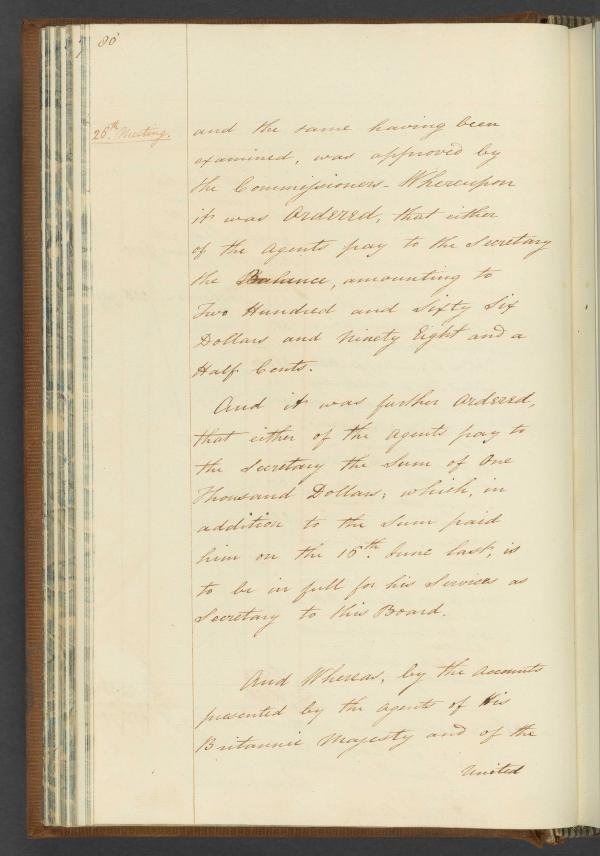 80
26th Meeting.
and the same having been
examined, was approved by
the Commissioners. Whereupon
it was Ordered, that either
of the Agents pay to the Secretary
the Balance, amounting to
Two Hundred and Sixty Six
Dollars and Ninety Eight and a
Half Cents.
And it was further Ordered,
that either of the Agents pay to
the Secretary the Sum of One
Thousand Dollars; which, in
addition to the Sum paid
him on the 16th June last, is
to be in full for his Services as
Secretary to this Board.
And Whereas, by the Accounts
presented by the Agents of His
Britannic Majesty and of the
United